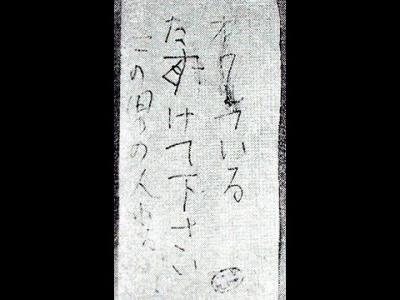 オワレている
たすけて下さい
この男の人